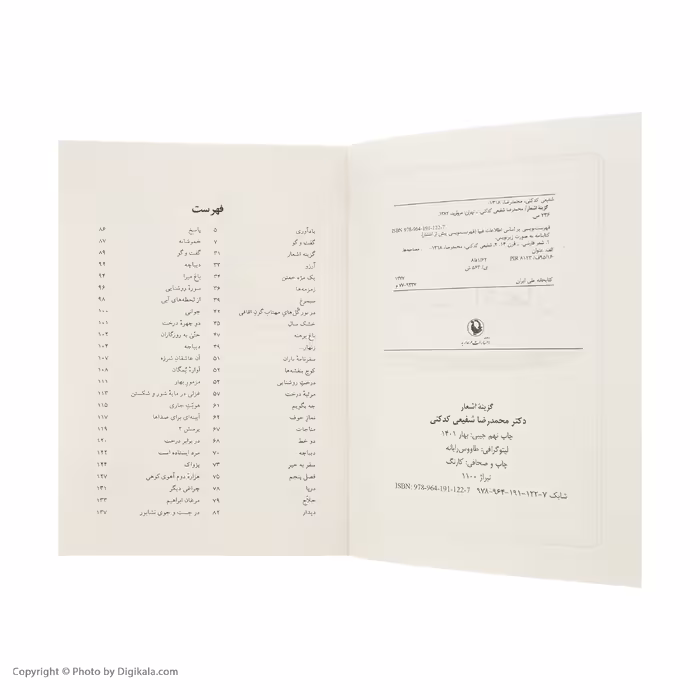 شفیعی کدکنی، محمدرضا، ۱۳۱۸-
گزینهٔ اشعار/ محمدرضا شفیعی کدکنی. - تهران: مروارید، ۱۳۷۷.
۲۳۶ ص.
ISBN 978-964-191-122-7
فهرست‌نویسی بر اساس اطلاعات فیپا (فهرست‌نویسی پیش از انتشار)
کتابنامه به صورت زیرنویس.
۱. شعر فارسی -- قرن ۱۴. ۲. شفیعی کدکنی، محمدرضا، ۱۳۱۸-
الف. عنوان.
PIR ۸۱۲۳
۸فا۱/۶۲
۱۳۷۷
کتابخانه ملی ایران
گزینهٔ اشعار
دکتر محمدرضا شفیعی کدکنی
چاپ نهم جیبی: بهار ۱۴۰۱
لیتوگرافی: طاووس‌رایانه
چاپ و صحافی: کارنگ
تیراژ ۱۱۰۰
شابک ۷-۱۲۲-۱۹۱-۹۶۴-۹۷۸ ISBN: 978-964-191-122-7
فهرست
یادآوری ۵
گفت و گو ۷
گزینه اشعار ۳۱
آرزو ۳۳
یک مژه خفتن ۳۴
زمزمه‌ها ۳۶
سیمرغ ۳۹
در نور گل‌های مهتاب‌گون اقاقی ۴۲
خشک سال ۴۵
باغ برهنه ۴۷
زنهار... ۴۹
سفرنامهٔ باران ۵۱
کوچ بنفشه‌ها ۵۲
درخت روشنایی ۵۴
مرثیهٔ درخت ۵۷
چه بگویم ۶۱
نماز خوف ۶۴
مناجات ۶۷
دو خط ۶۸
دیباچه ۷۰
سفر به خیر ۷۳
فصل پنجم ۷۵
دریا ۷۸
حلاج ۷۹
دیدار ۸۲
پاسخ ۸۶
خموشانه ۸۷
گفت و گو ۸۹
دیباچه ۹۲
باغ میرا ۹۴
سورهٔ روشنایی ۹۶
از لحظه‌های آبی ۹۸
جوانی ۱۰۰
دو چهرهٔ درخت ۱۰۱
حتی به روزگاران ۱۰۲
دیباجه ۱۰۴
آن عاشقان شرزه ۱۰۷
آوارهٔ یمگان ۱۰۸
مزمور بهار ۱۱۱
غزلی در مایهٔ شور و شکستن ۱۱۳
هویت جاری ۱۱۵
آیینه‌ای برای صداها ۱۱۷
پرسش ۲ ۱۱۹
در برابر درخت ۱۲۰
مرد ایستاده است ۱۲۲
پژواک ۱۲۴
هزارهٔ دوم آهوی کوهی ۱۲۷
چراغی دیگر ۱۳۱
مرغان ابراهیم ۱۳۳
در جست و جوی نشابور ۱۳۷
Copyright © Photo by Digikala.com